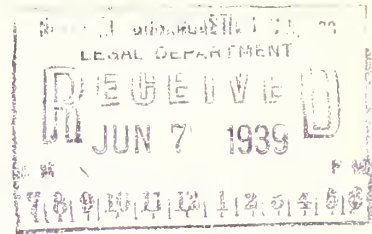 LEGAL DEPARTMENT
RECEIVED
JUN 7 1939
7 8 9 10 11 12 1 2 3 4 5 6